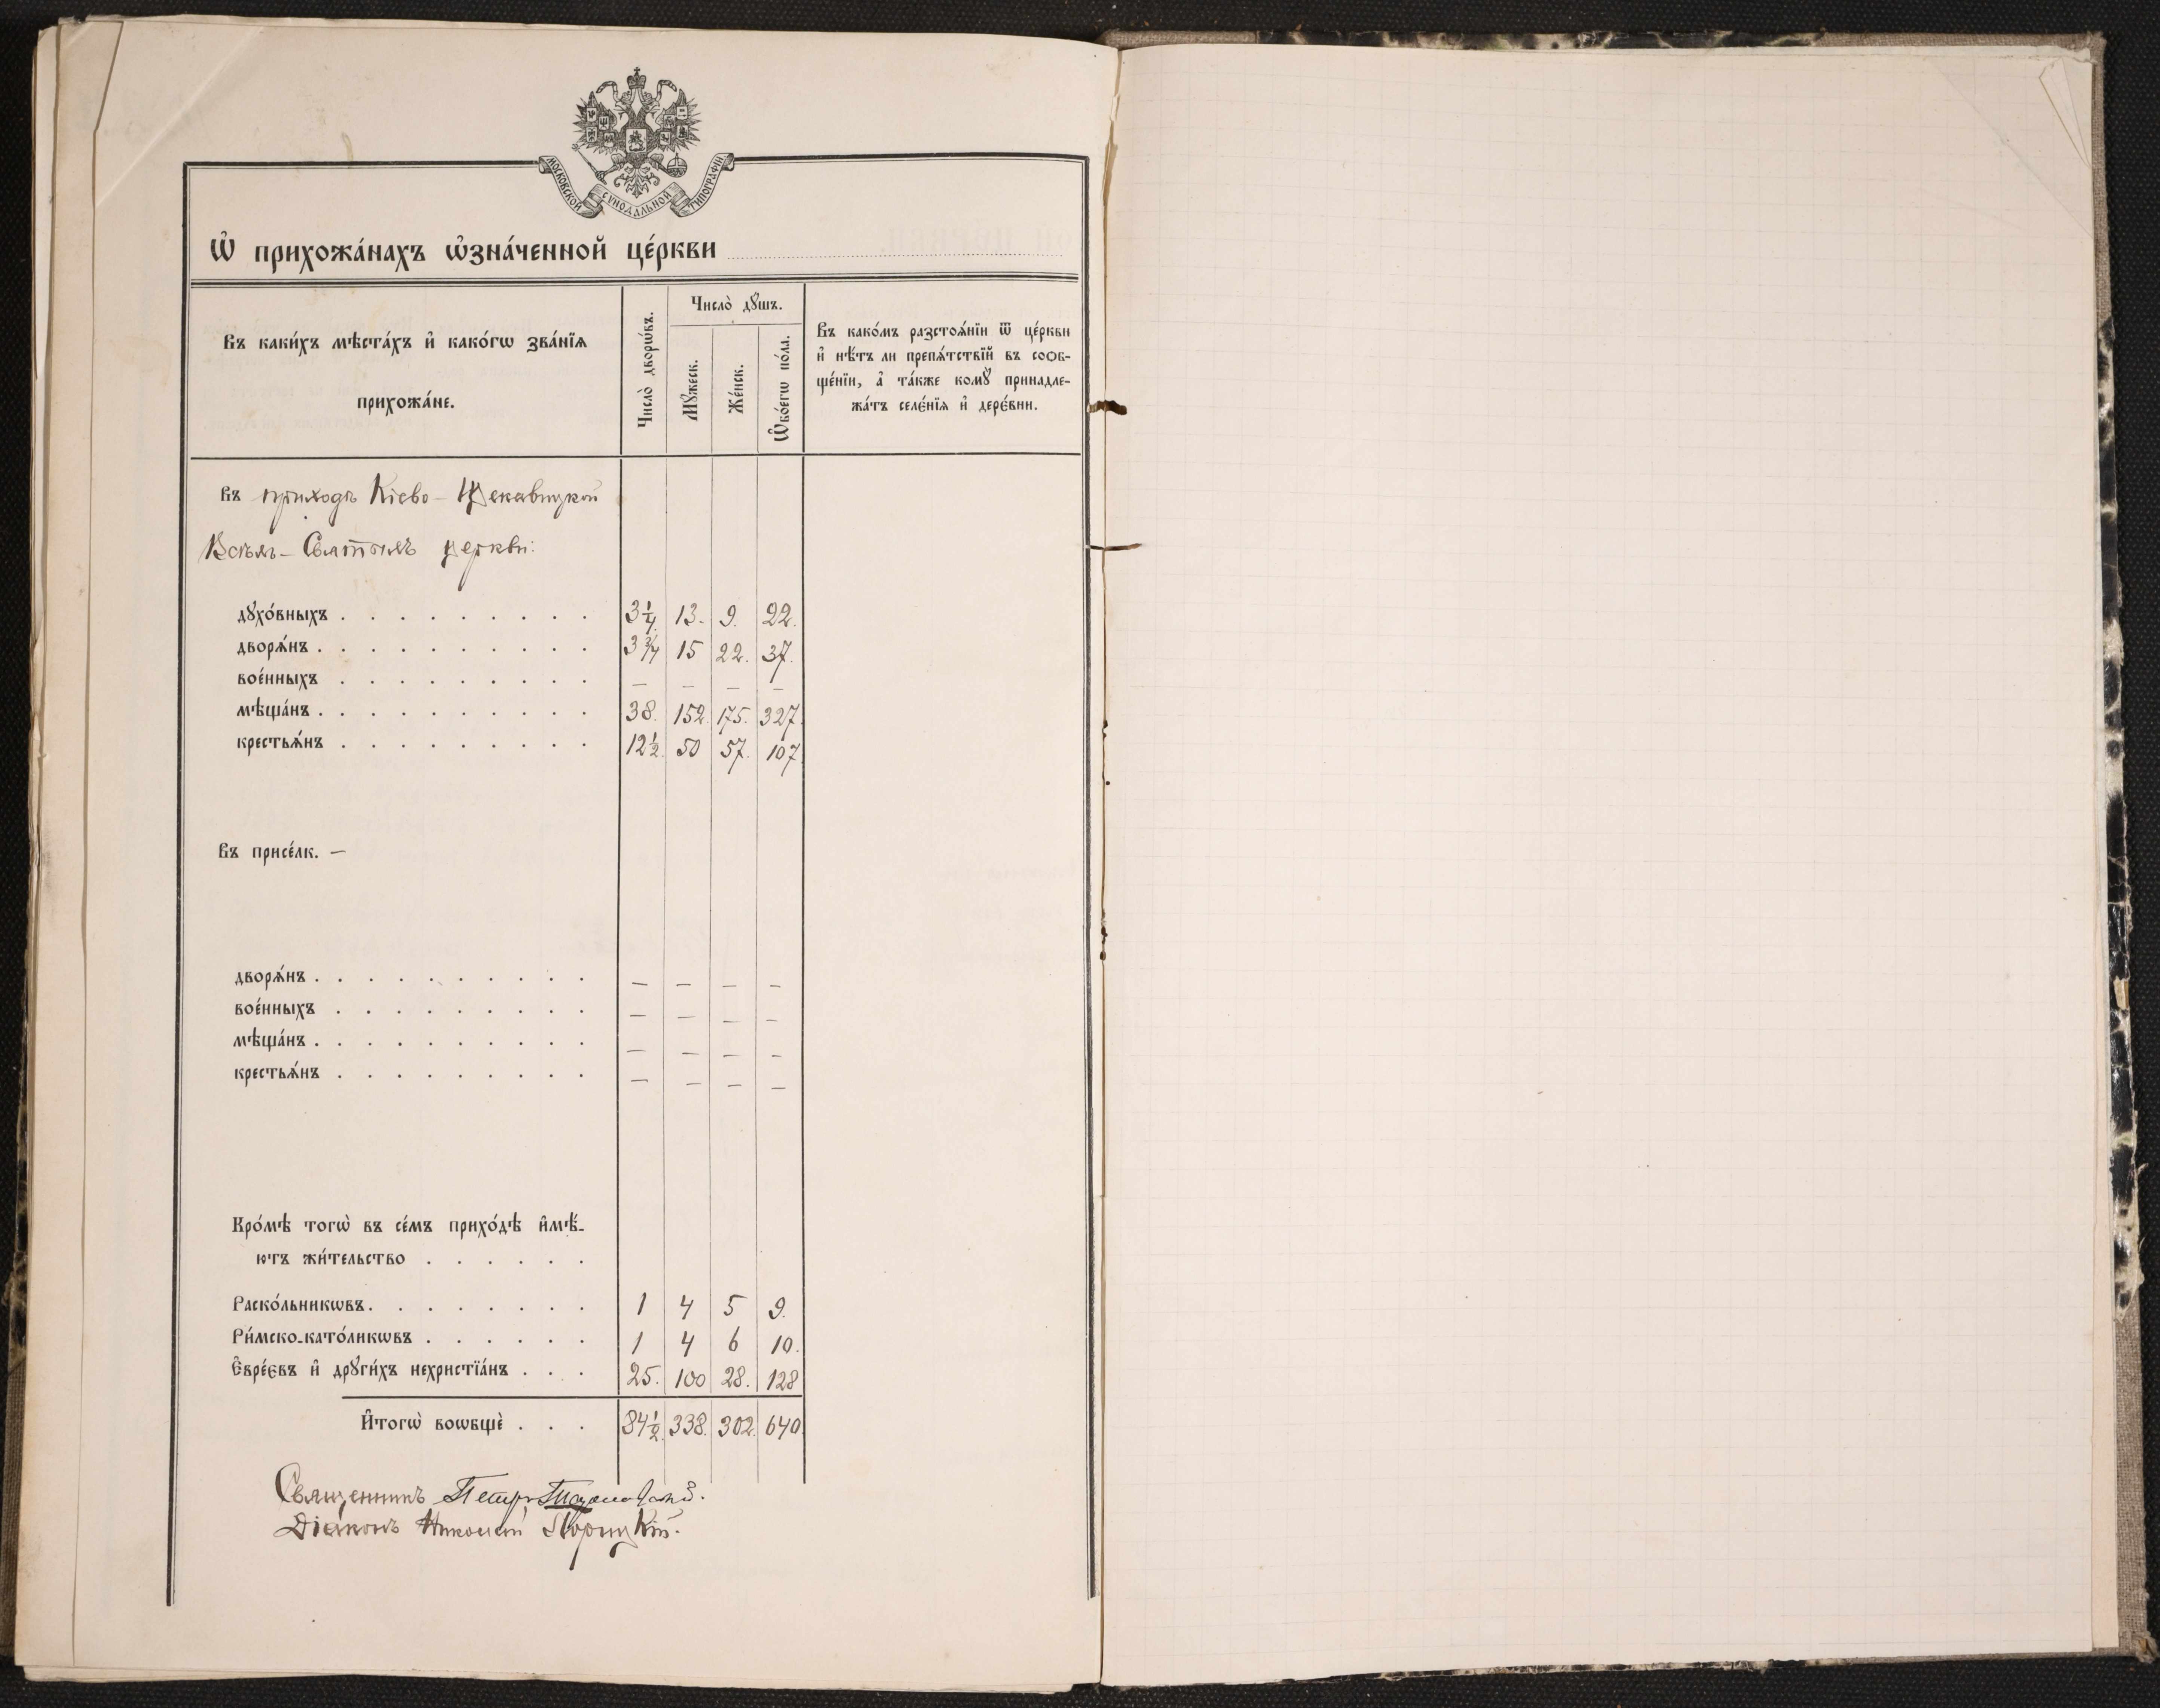 МОСКОВСКОЙ СѴНОДАЛЬНОЙ ТИПОГРАФІИ
Ѽ прихожа́нахъ ѡ҆зна́ченной це́ркви
Въ каки́хъ мѣста́хъ и҆ како́гѡ зва́нїѧ
прихожа́не.
Число̀ дворѡ́въ.
Число̀ дꙋ́шъ.
Мꙋ́жеск.
Же́нск.
Ѻ҆бо́егѡ по́ла.
Въ како́мъ разстоѧ́нїи ѿ це́ркви
и҆ нѣ́тъ ли препѧ́тствїй въ сооб-
ще́нїи, а҆ та́кже комꙋ̀ принадле-
жа́тъ селе́нїѧ и҆ дере́вни.
Въ приходѣ Кіево-Щекавицкой
Всѣхъ-Святыхъ церкви:
дꙋхо́вныхъ . . . . . . . . . 3¼. 13. 9. 22.
дворѧ́нъ . . . . . . . . . . 3¾ 15 22. 37.
вое́нныхъ . . . . . . . . . — — — —
мѣща́нъ . . . . . . . . . . 38. 152. 175. 327.
крестьѧ́нъ . . . . . . . . . 12½. 50 57. 107
Въ присе́лк. —
дворѧ́нъ . . . . . . . . . . — — — —
вое́нныхъ . . . . . . . . . — — — —
мѣща́нъ . . . . . . . . . . — — — —
крестьѧ́нъ . . . . . . . . . — — — —
Кро́мѣ тогѡ̀ въ се́мъ прихо́дѣ и҆мѣ́-
ютъ жи́тельство . . . . . .
Раско́льникѡвъ . . . . . . . . 1 4 5 9.
Ри́мско-като́ликѡвъ . . . . . . 1 4 6 10.
Є҆вре́євъ и҆ дрꙋги́хъ нехристїа́нъ . . . 25. 100 28. 128
И҆тогѡ̀ вообщѐ . . . 84½. 338. 302. 640.
Священникъ Петръ
Діаконъ Николай Порицкій.